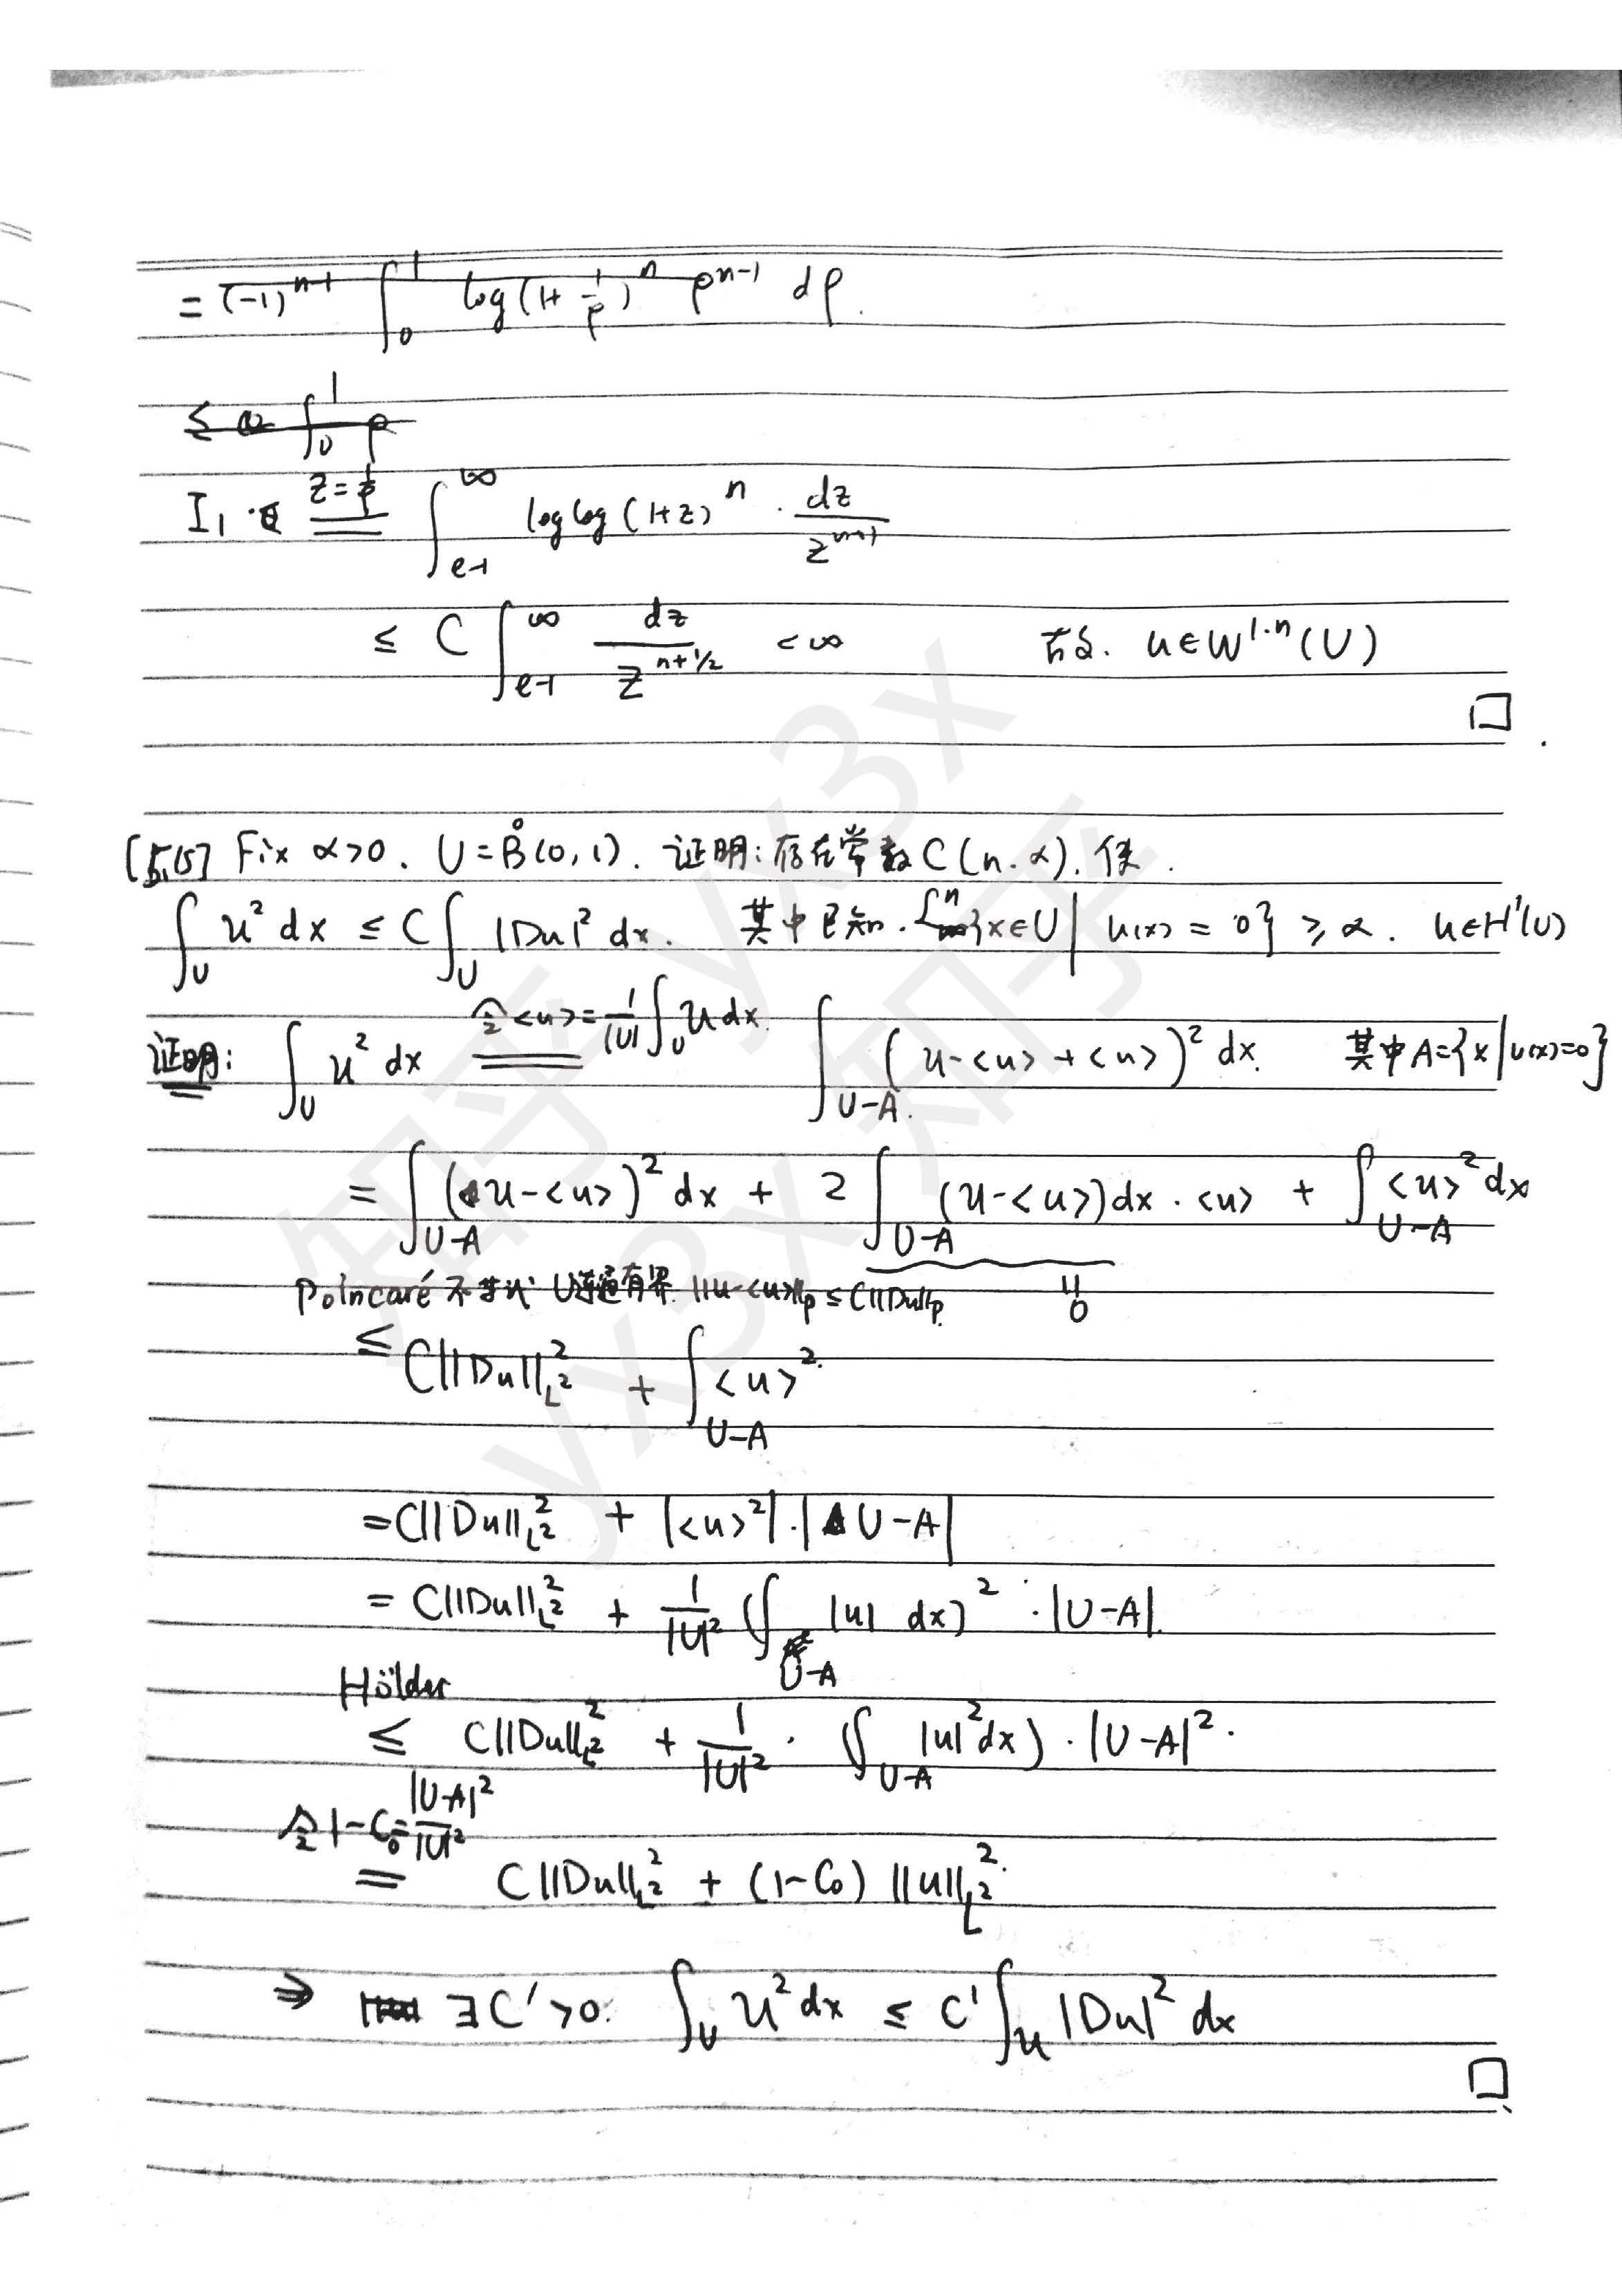 = (-1)^{n-1} ∫_0^1 log(1+1/ρ)^n ρ^{n-1} dρ.
≤ ∫_0^1 ρ
I_1 =^{z=1/ρ} ∫_{e-1}^∞ log log(1+z)^n · dz/z^{n+1}
≤ C ∫_{e-1}^∞ dz/z^{n+1/2} < ∞ u∈W^{1.n}(U)
□
[5.15] Fix α>0. U=B°(0,1). 证明:存在常数C(n.α).使.
∫_U u² dx ≤ C∫_U |Du|² dx. 其中已知. L^n{x∈U| u(x)=0} ≥ α. u∈H¹(U)
证明: ∫_U u² dx =^{令<u>=1/|U| ∫_U u dx.} ∫_{U-A.} (u-<u>+<u>)² dx. 其中A={x|u(x)=0}
= ∫_{U-A} (u-<u>)² dx + 2∫_{U-A} (u-<u>)dx·<u> + ∫_{U-A} <u>² dx
Poincaré 不等式 U连通有界. ||u-<u>||_p ≤ C||Du||_p. = 0
≤ C||Du||²_{L²} + ∫_{U-A} <u>².
= C||Du||²_{L²} + |<u>²|·|U-A|
= C||Du||²_{L²} + 1/|U|² (∫_{U-A} |u| dx)²·|U-A|.
Hölder
≤ C||Du||²_{L²} + 1/|U|² · (∫_{U-A} |u|²dx)·|U-A|².
令1-C₀=|U-A|²/|U|²
= C||Du||²_{L²} + (1-C₀)||u||²_{L²}.
⇒ ∃C'>0. ∫_U u² dx ≤ C'∫_U |Du|² dx
□
知乎 yx3x
yx3x 知乎